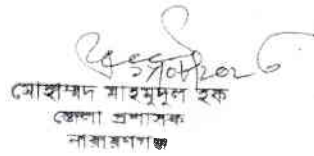 মোহাম্মদ মাহমুদুল হক
জেলা প্রশাসক
নারায়ণগঞ্জ